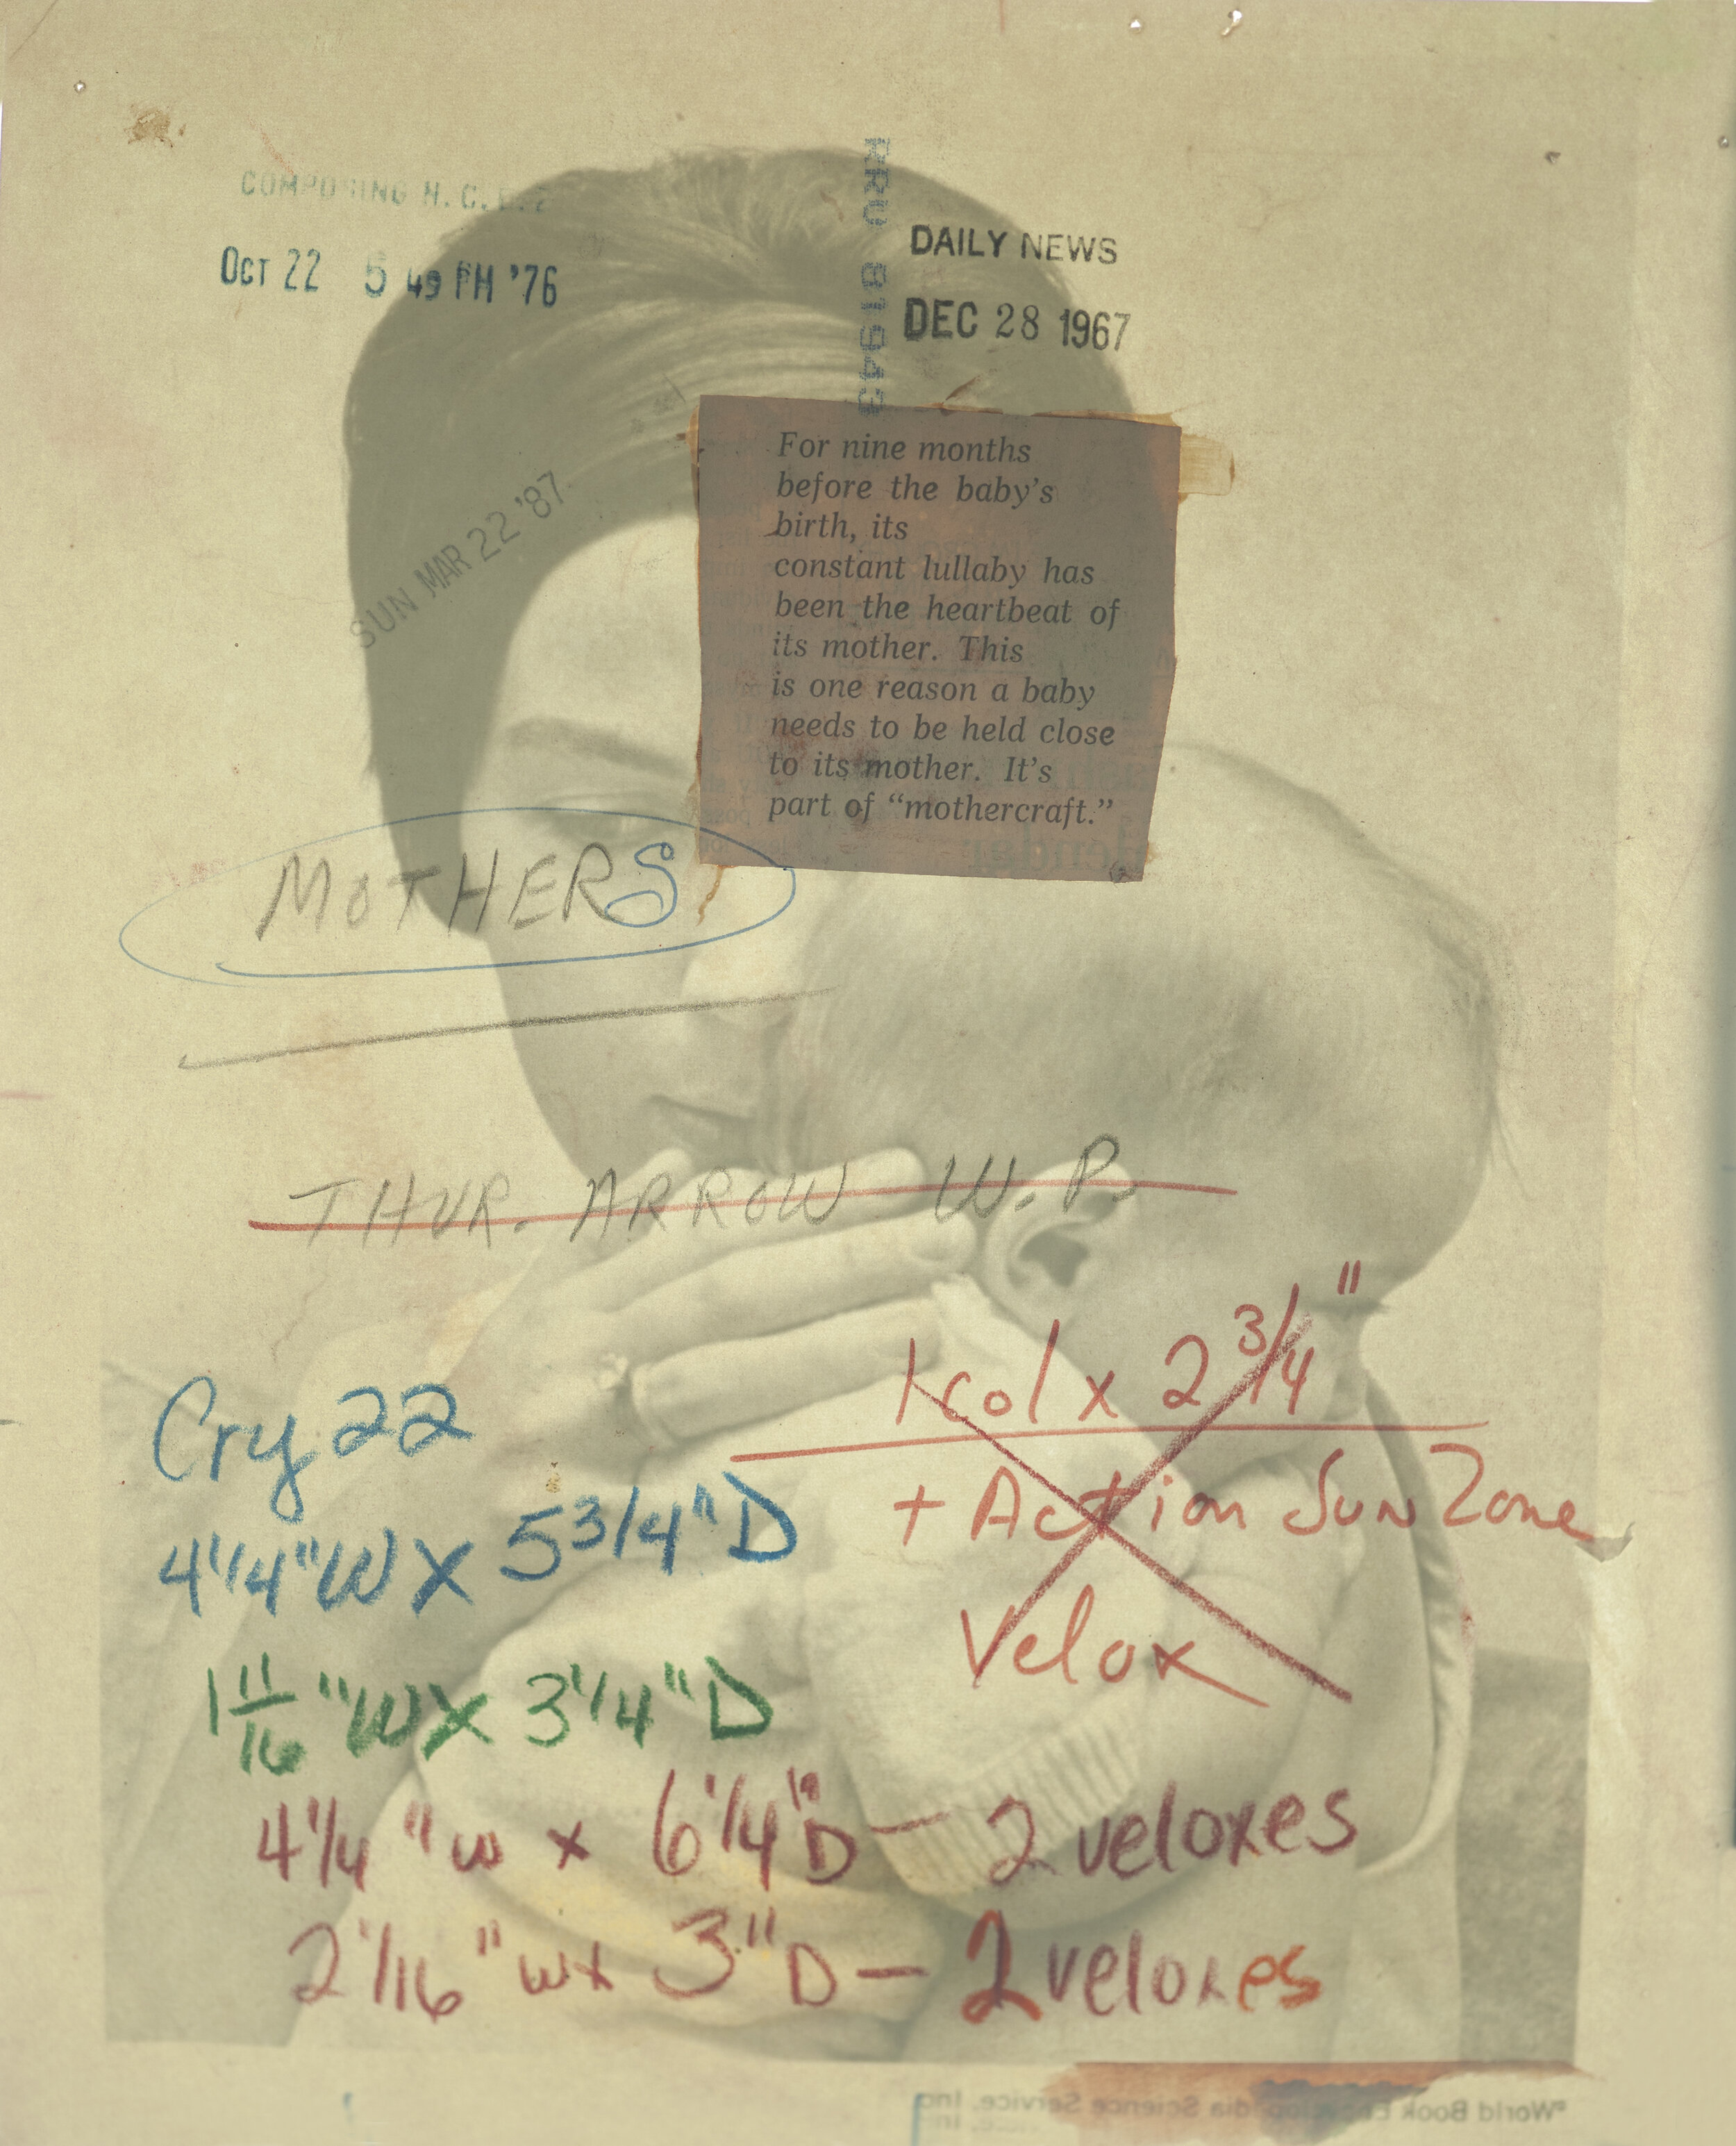 COMPOSING
RRU 81943
DAILY NEWS
Oct 22 5 49 PM '76
DEC 28 1967
For nine months
before the baby's
birth, its
constant lullaby has
been the heartbeat of
its mother. This
is one reason a baby
needs to be held close
to its mother. It's
part of “mothercraft.”
SUN MAR 22 '87
MOTHERS
THUR. ARROW W. P.
1 col x 2 3/4"
+ Action Sun Zone
Velox
Cry 22
4 1/4" W X 5 3/4" D
1 11/16" W X 3 1/4" D
4 1/4" w x 6 1/4" D — 2 veloxes
2 1/16" w x 3" D — 2 veloxes
World Book Encyclopedia Science Service, Inc